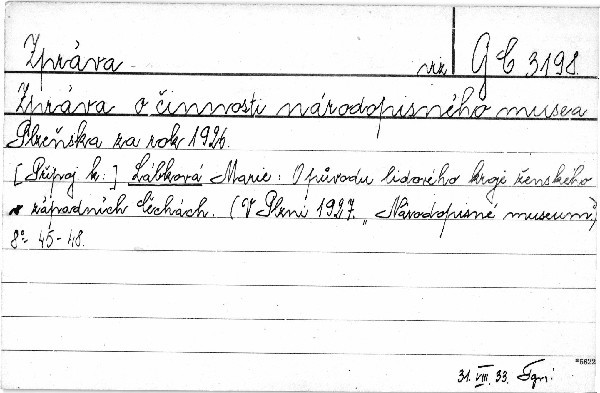 Zpráva viz G C 3198.
Zpráva o činnosti národopisného musea
Plzeňska za rok 1926.
[Připoj k:] Lábková Marie: O původu lidového kroje ženského
v západních Čechách. (V Plzni 1927. „Národopisné museum.")
8° 45-48.
31. VIII. 33.